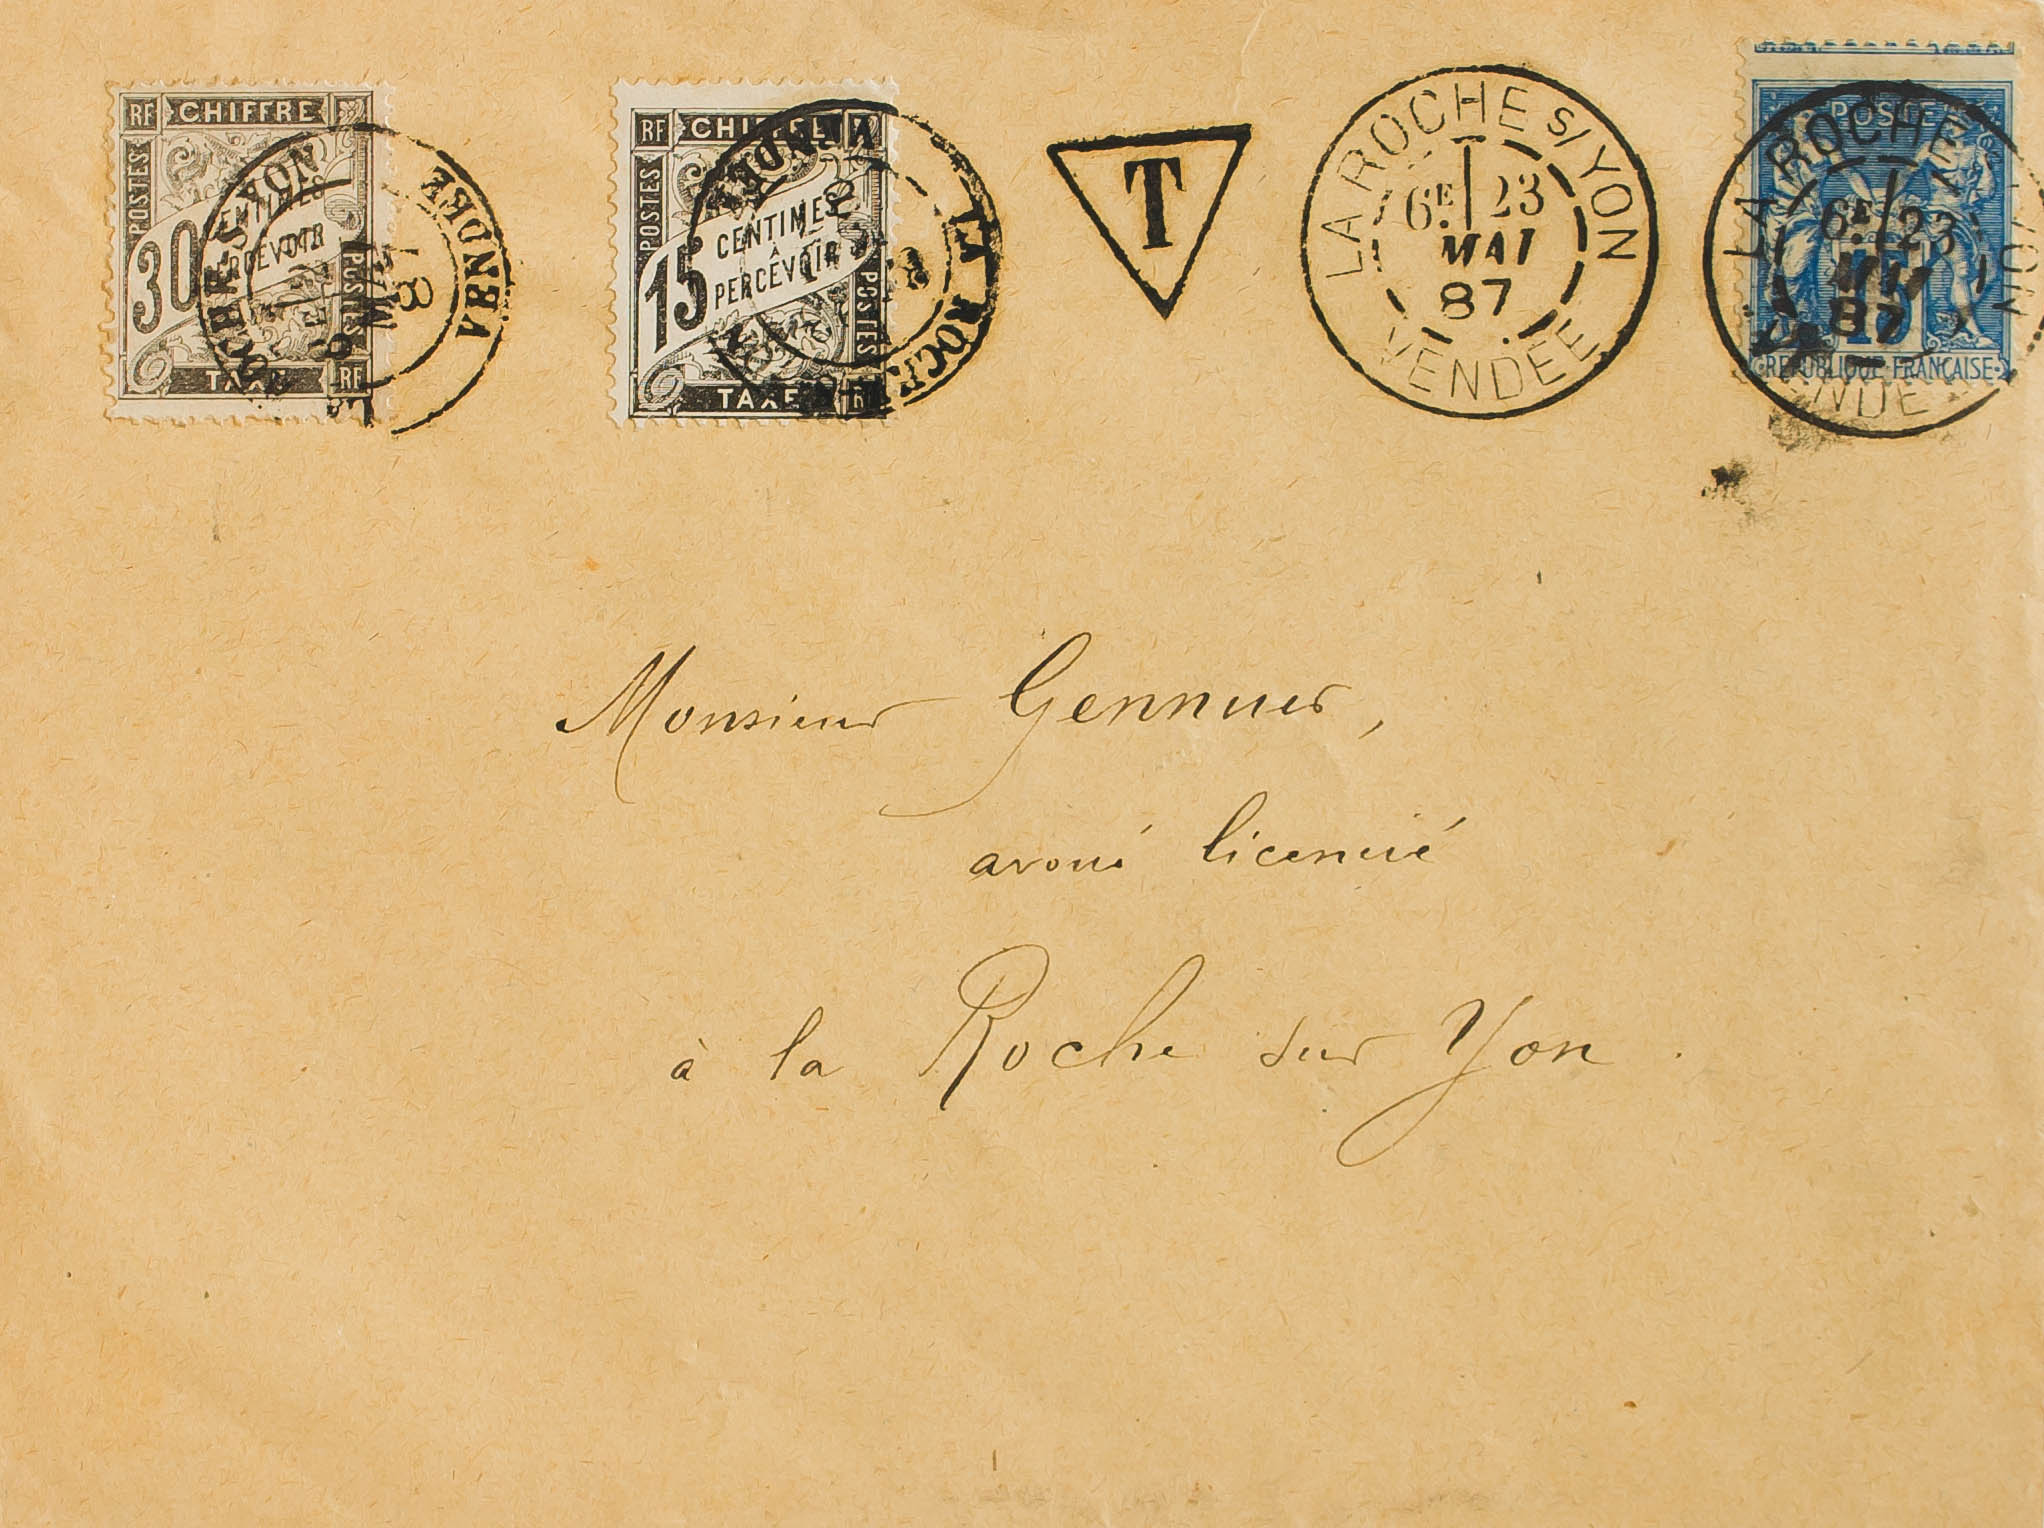 RF CHIFFRE
POSTES
30 CENTIMES
À PERCEVOIR
POSTES
TAXE RF
VENDÉE
RF CHIFFRE
POSTES
15 CENTIMES
À
PERCEVOIR
POSTES
TAXE RF
LA ROCHE
T
LA ROCHE S/ YON
6E 23
MAI
87
VENDEE
POSTE
LA ROCHE
6E 23
MAI
87
15
REPUBLIQUE FRANÇAISE
Monsieur Gennuer,
avoué licencié
à la Roche sur Yon.